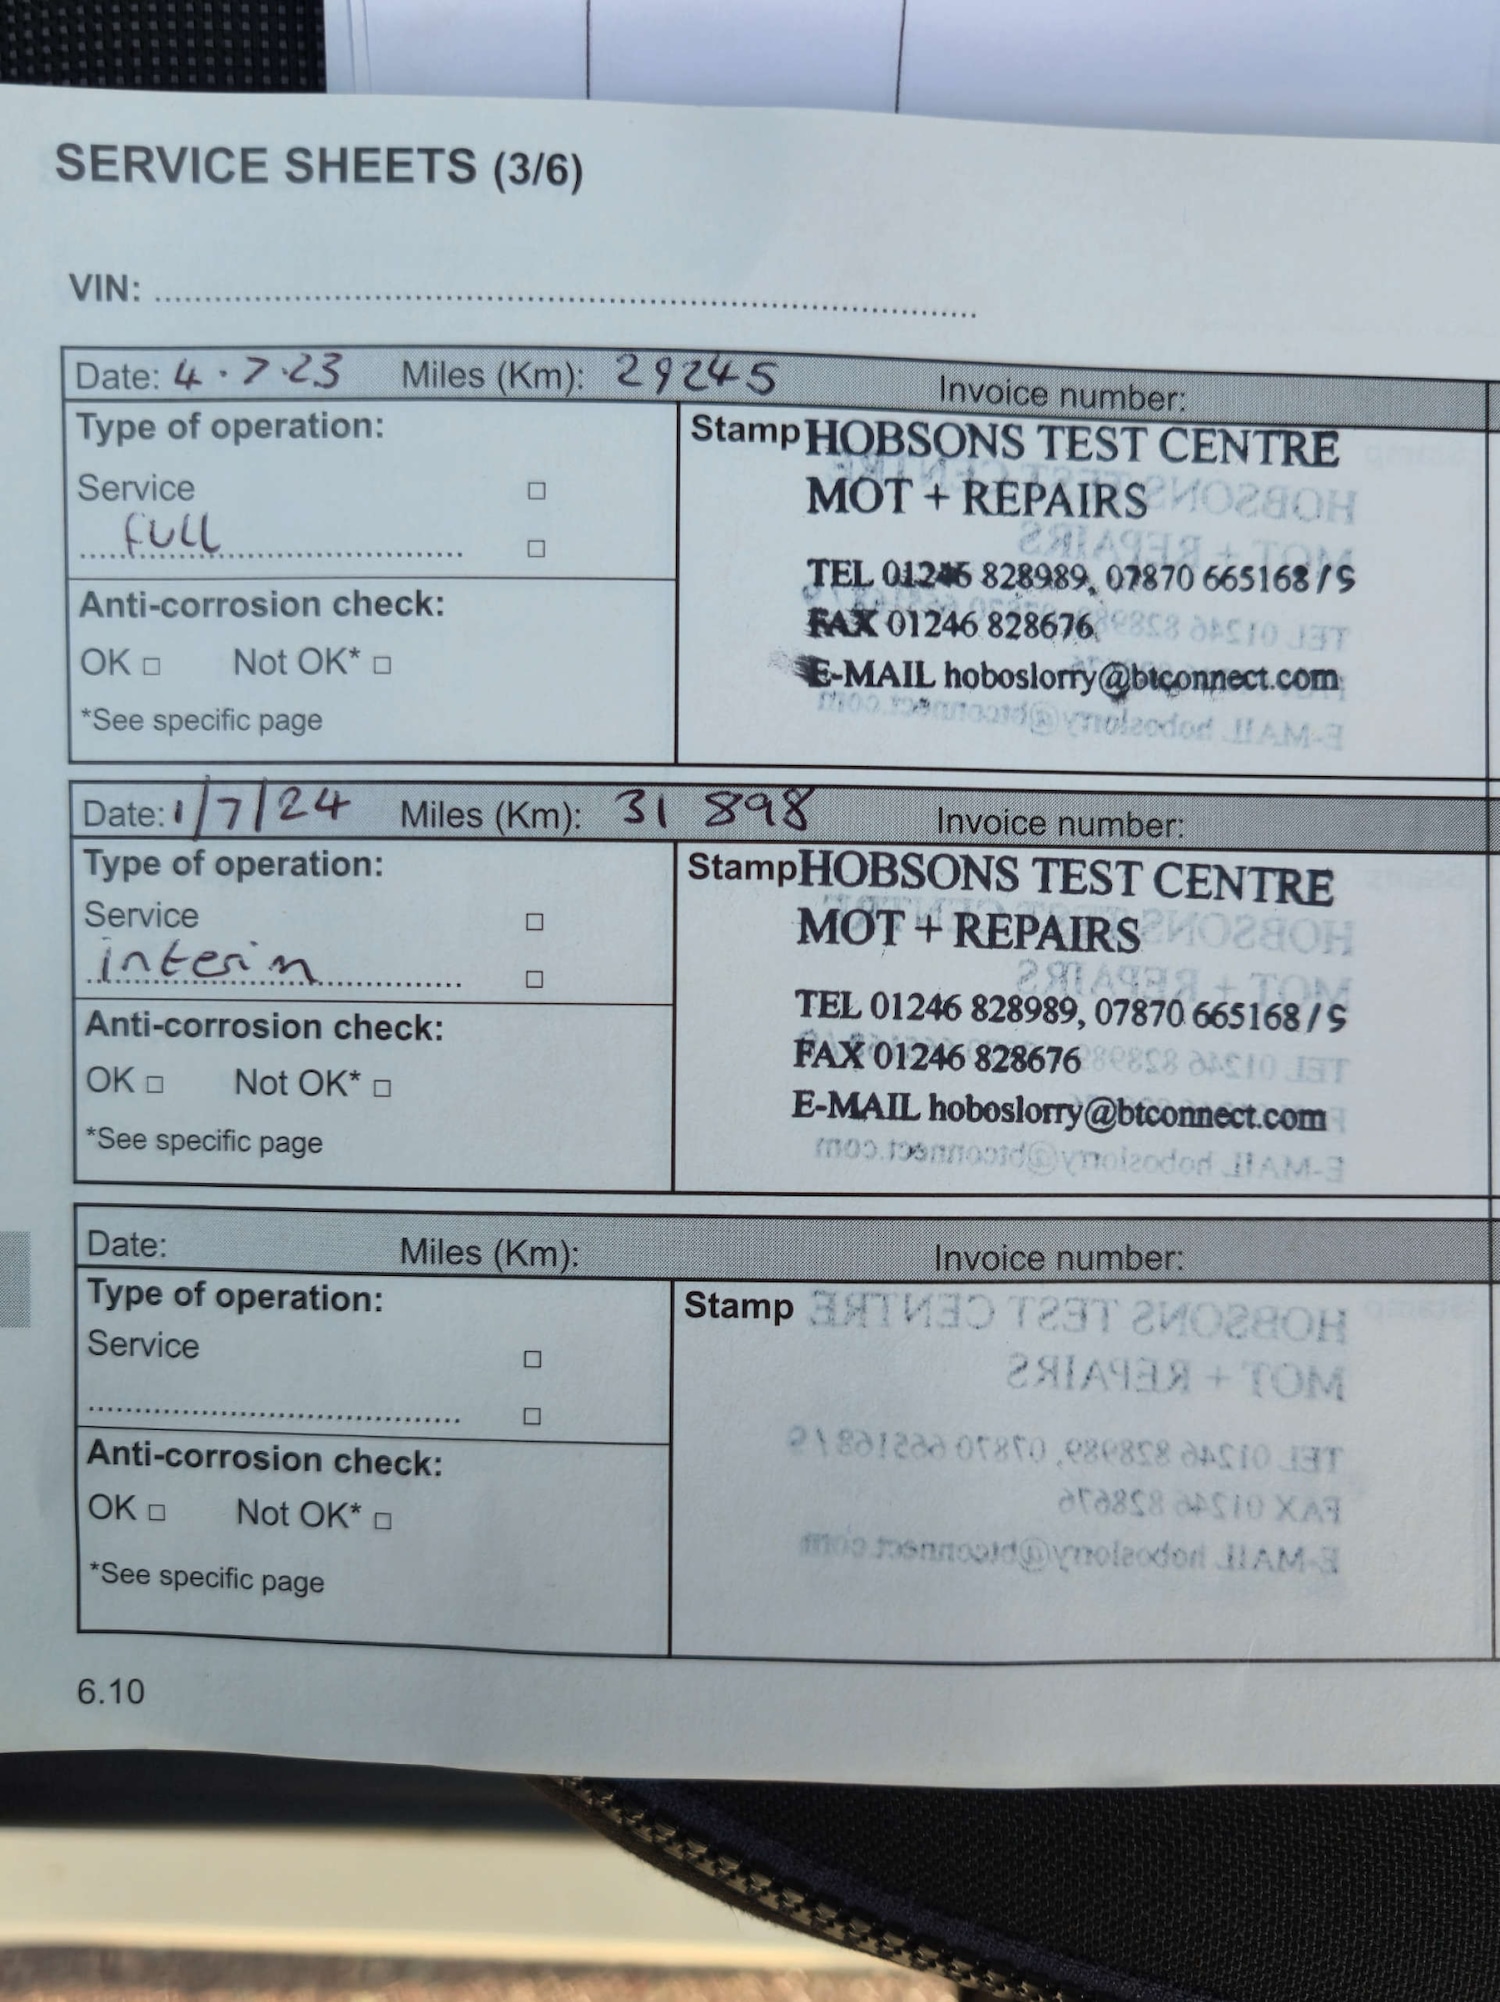 SERVICE SHEETS (3/6)
VIN: ........................................................................
Date: 4.7.23 Miles (Km): 29245 Invoice number:
Type of operation:
Service □
full □
Anti-corrosion check:
OK □ Not OK* □
*See specific page
Stamp HOBSONS TEST CENTRE
MOT + REPAIRS
TEL 01246 828989, 07870 665168/9
FAX 01246 828676
E-MAIL hoboslorry@btconnect.com
Date: 1/7/24 Miles (Km): 31 898 Invoice number:
Type of operation:
Service □
interim □
Anti-corrosion check:
OK □ Not OK* □
*See specific page
Stamp HOBSONS TEST CENTRE
MOT + REPAIRS
TEL 01246 828989, 07870 665168/9
FAX 01246 828676
E-MAIL hoboslorry@btconnect.com
Date: Miles (Km): Invoice number:
Type of operation:
Service □
........................................ □
Anti-corrosion check:
OK □ Not OK* □
*See specific page
Stamp HOBSONS TEST CENTRE
MOT + REPAIRS
TEL 01246 828989, 07870 665168/9
FAX 01246 828676
E-MAIL hoboslorry@btconnect.com
6.10